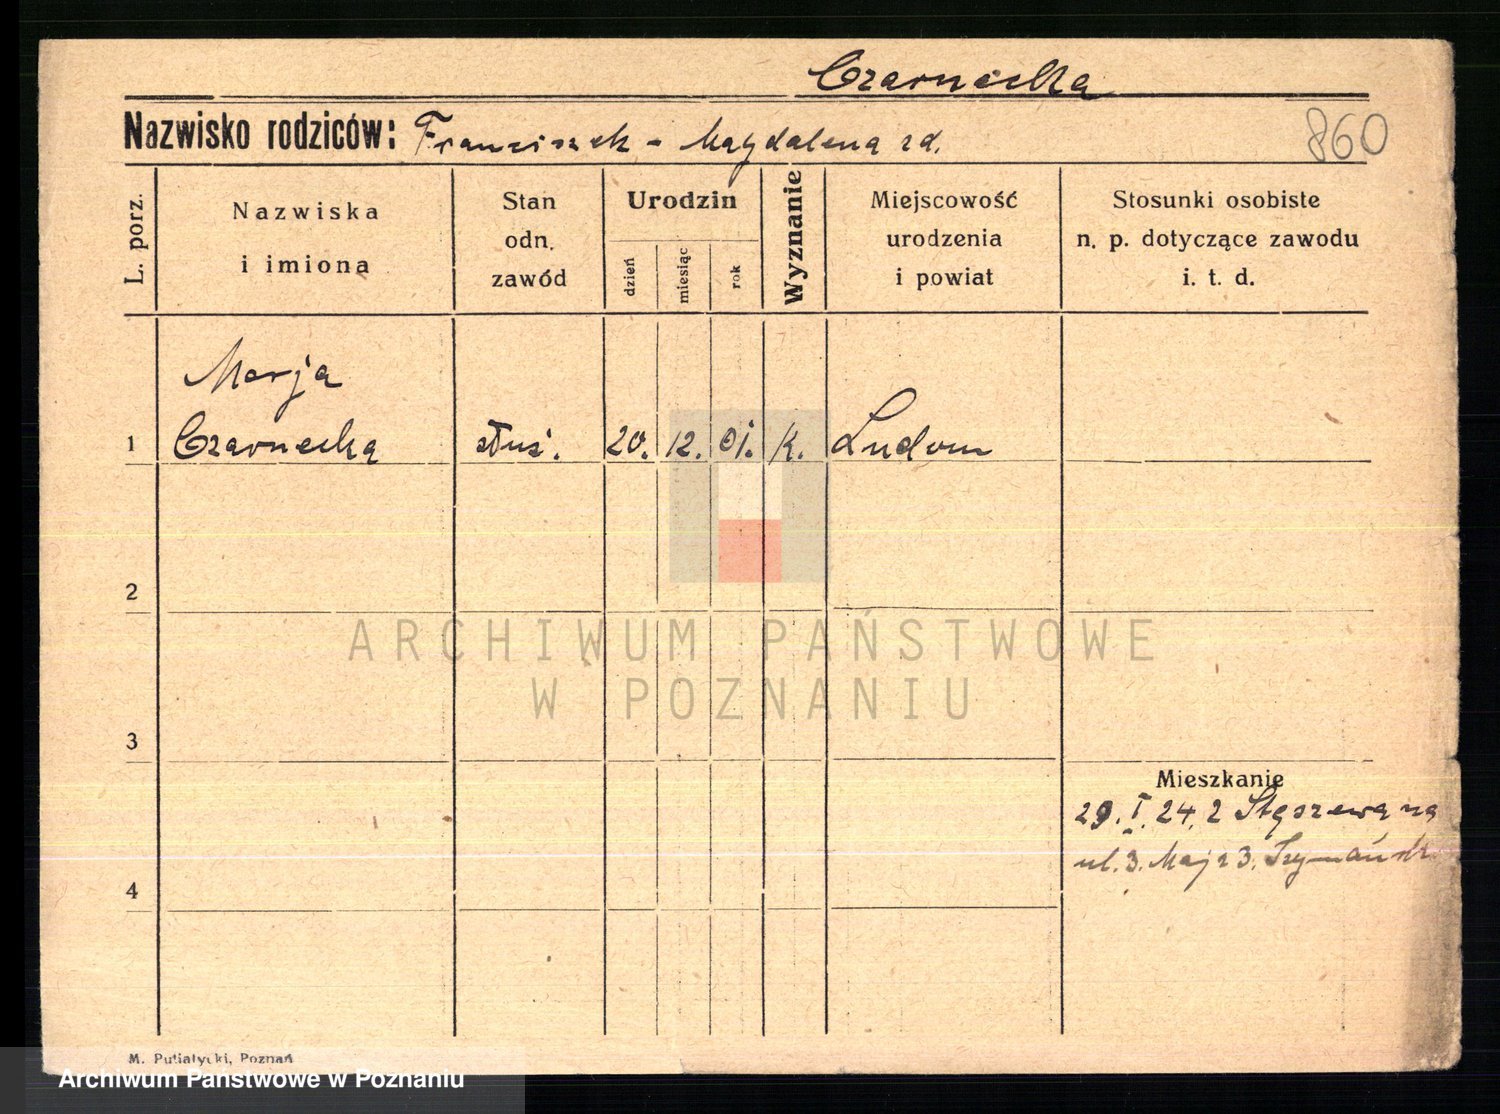 Czarnecka
Nazwisko rodziców: Franciszek - Magdalena zd.
860
L. porz.
Nazwiska
i imiona
Stan
odn.
zawód
Urodzin
dzień
miesiąc
rok
Wyznanie
Miejscowość
urodzenia
i powiat
Stosunki osobiste
n. p. dotyczące zawodu
i. t. d.
Marja
1 Czarnecka służ. 20. 12. 01. K. Ludom
2
ARCHIWUM PAŃSTWOWE
W POZNANIU
3
Mieszkanie
29. I. 24. z Stęszewa na
ul. 3. Maja 3.
4
M. Putiatycki, Poznań
Archiwum Państwowe w Poznaniu